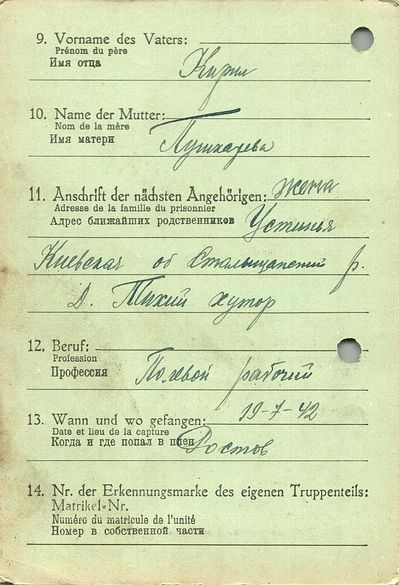 9. Vorname des Vaters:
Prénom du père
Имя отца
Кирил
10. Name der Mutter:
Nom de la mère
Имя матери
Пушкарева
11. Anschrift der nächsten Angehörigen: жена
Adresse de la famille du prisonnier
Адрес ближайших родственников Устинья
Киевская об р.
д. Тихий хутор
12. Beruf:
Profession
Профессия
Полевой рабочий
13. Wann und wo gefangen: 19-7-42
Date et lieu de la capture
Когда и где попал в плен Ростов
14. Nr. der Erkennungsmarke des eigenen Truppenteils:
Matrikel-Nr.
Numéro du matricule de l'unité
Номер в собственной части